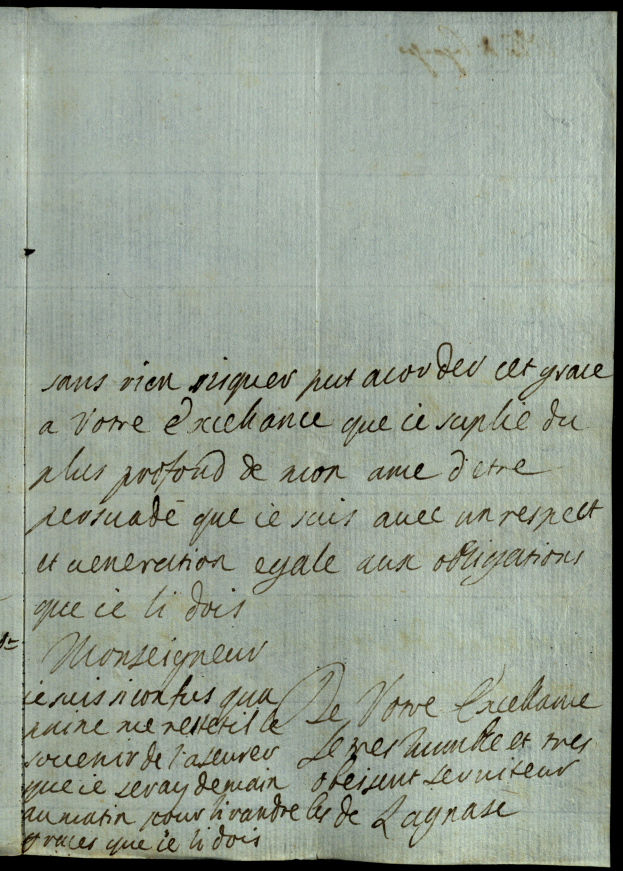 sans rien risquer put acorder cet grace
a Votre Excellance que ie suplie du
plus profond de mon ame d'etre
persuadé que ie suis avec un respect
et veneration egale aux obligations
que ie li dois
Monseigneur
De Votre Excellance
Le tres humble et tres
obeissent serviteur
de Lagnasc
ie suis si confus qu'a
paine me reste til le
souvenir de l'aseurer
que ie seray demain
au matin pour li randre les
graces que ie li dois